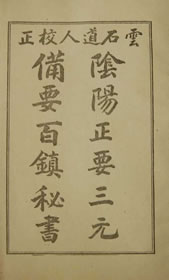 雲石道人校正
陰陽正要三元
備要百鎮秘書